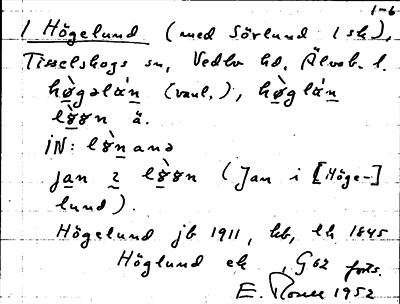 1-6
1 Högelund (med Sörlund 1 sk),
Tisselskogs sn, Vedbo hd, Älvsb. l.
hø̀gəlán (vanl.), hø̀glán
lǿn ä.
iN: lǿnana
jan i (Jan i [Höge-]
lund).
Högelund jb 1911, kb, lk 1645
Höglund ek, G62 forts.
E. 1952